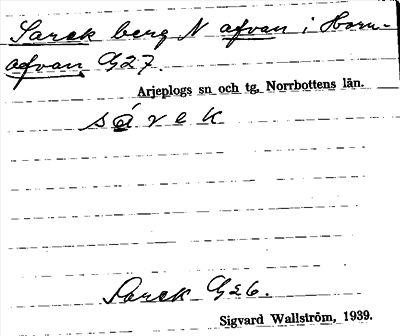 Sarek berg N afvan i Horn-
afvan G27.
Arjeplogs sn och tg, Norrbottens län.
sárek
Sarek G26.
Sigvard Wallström, 1939.